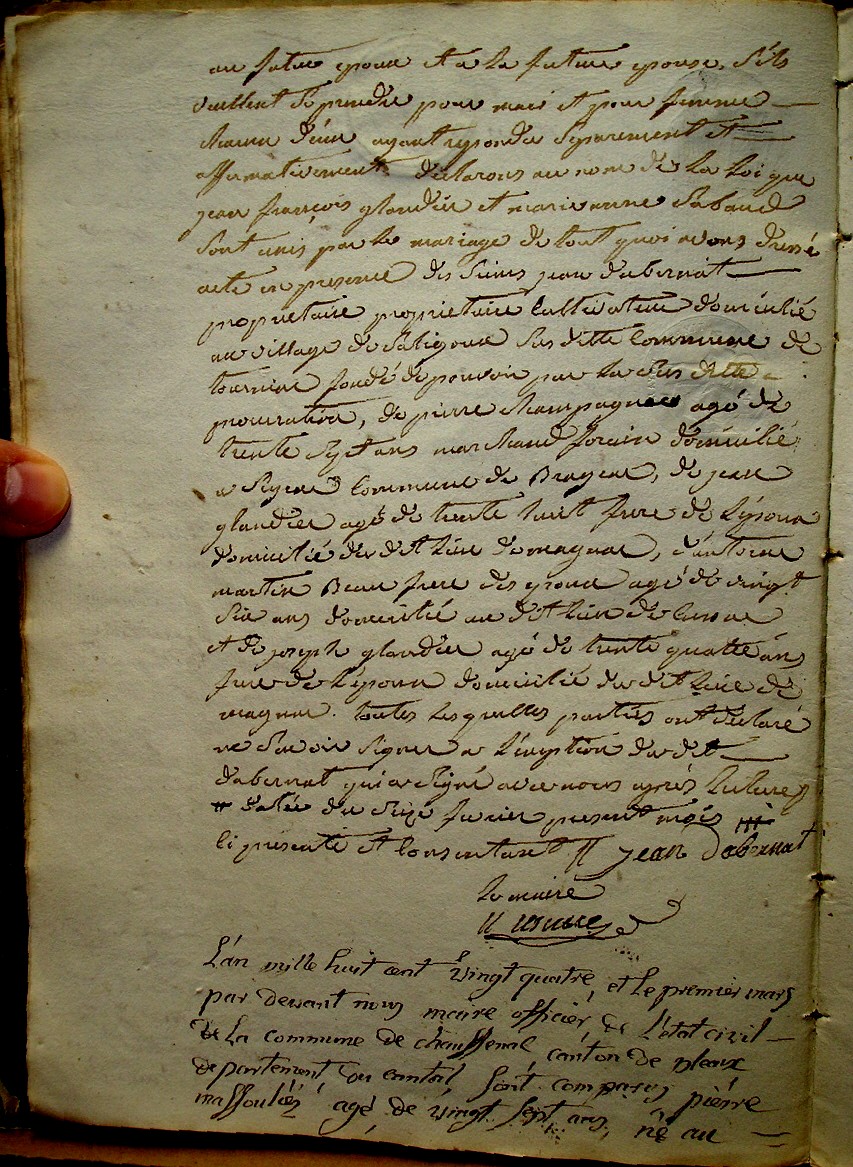 au futur epoux et a la future epouse, s'ils
veullent se prendre pour mari et pour femme
chacun d'eux ayant repondu separement et
affirmativement declarons au nom de la loi que
jean françois glandier et marie anne Sabaud
sont unis par le mariage de tout quoi avons dressé
acte en presence des sieurs jean dabernat
proprietaire proprietaire cultivateur domicilié
au village de susditte commune de
tourniac fondé de pouvoir par la susditte
procuration, de pierre Champagnac agé de
trente sept ans marchand forain domicilié
a commune de Brageac, de jean
glandier agé de trente huit frere de l'epoux
domicilié du dit lieu de magnac, d'antoine
martin Beau frere des epoux agé de vingt
six ans domicilié au dit lieu de
et de joseph glandier agé de trente quatre ans
frere de l'epoux domicilié du dit lieu de
magnac. toutes lesquelles parties ont declaré
ne savoir signer a l'exeption du dit
dabernat qui a signé avec nous après lecture
datée du seize fevrier present mois
ci presente et consentant // jean Dabernat
le maire
L'an mille huit cent vingt quatre, et le premier mars
par devant nous maire officier de l'état civil
de la commune de chaussenac canton de pleaux
departement du cantal, sont comparus pierre
massouliés agé de vingt sept ans, né au